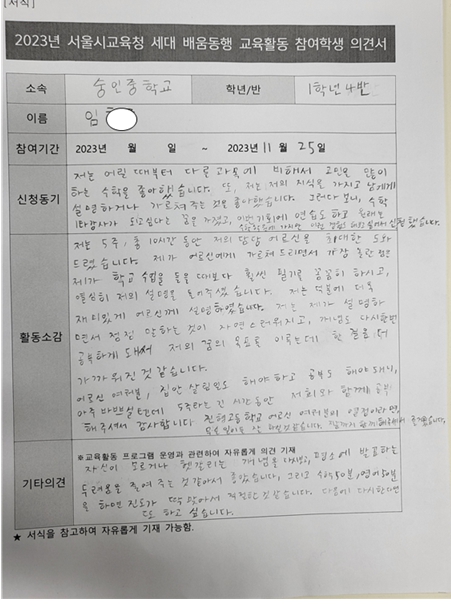 [서식]
2023년 서울시교육청 세대 배움동행 교육활동 참여학생 의견서
소속 숭인중학교 학년/반 1학년 4반
이름 임
참여기간 2023년 월 일 ~ 2023년 11월 25일
신청동기
저는 어릴 때부터 다른 과목에 비해서 고민을 많이
하는 수학을 좋아했습니다. 또, 저는 저의 지식을 가지고 남에게
설명하거나 가르쳐 주는 것을 좋아했습니다. 그러다 보니, 수학
되고싶다는 꿈을 가졌고, 이번 기회에 연습도 하고
신청했습니다.
활동소감
저는 5주, 총 10시간 동안 저의 담당 어르신을 최대한 도와
드렸습니다. 제가 어르신에게 가르쳐 드리면서 가장 놀란 점은
제가 학교 수업을 들을 때보다 훨씬 필기를 꼼꼼히 하시고,
열심히 저의 설명을 들어주셨습니다. 저는 덕분에 더욱
재미있게 어르신께 설명하였습니다. 저는 제가 설명하
면서 점점 말하는 것이 자연스러워지고, 개념도 다시한번
공부하게 돼서 저의 꿈의 목표를 이루는데 한 걸음 더
가까워진 것 같습니다.
어르신 여러분, 집안 살림일도 해야하고 공부도 해야돼서,
아주 바쁘실텐데 5주라는 긴 시간동안 저희와 함께 공부
해주셔서 감사합니다. 진형중고등학교 어르신 여러분의 열정이라면,
기타의견
※교육활동 프로그램 운영과 관련하여 자유롭게 의견 기재
자신이 모르거나 헷갈리는 개념을 다시보고, 평소에 발표하는
두려움을 줄여 주는 것 같아서 좋았습니다. 그리고 수학50분, 영어50분
을 하면 진도가 딱 맞아서 적절한것 같습니다. 다음에 다시한다면
또 하고 싶습니다.
★ 서식을 참고하여 자유롭게 기재 가능함.